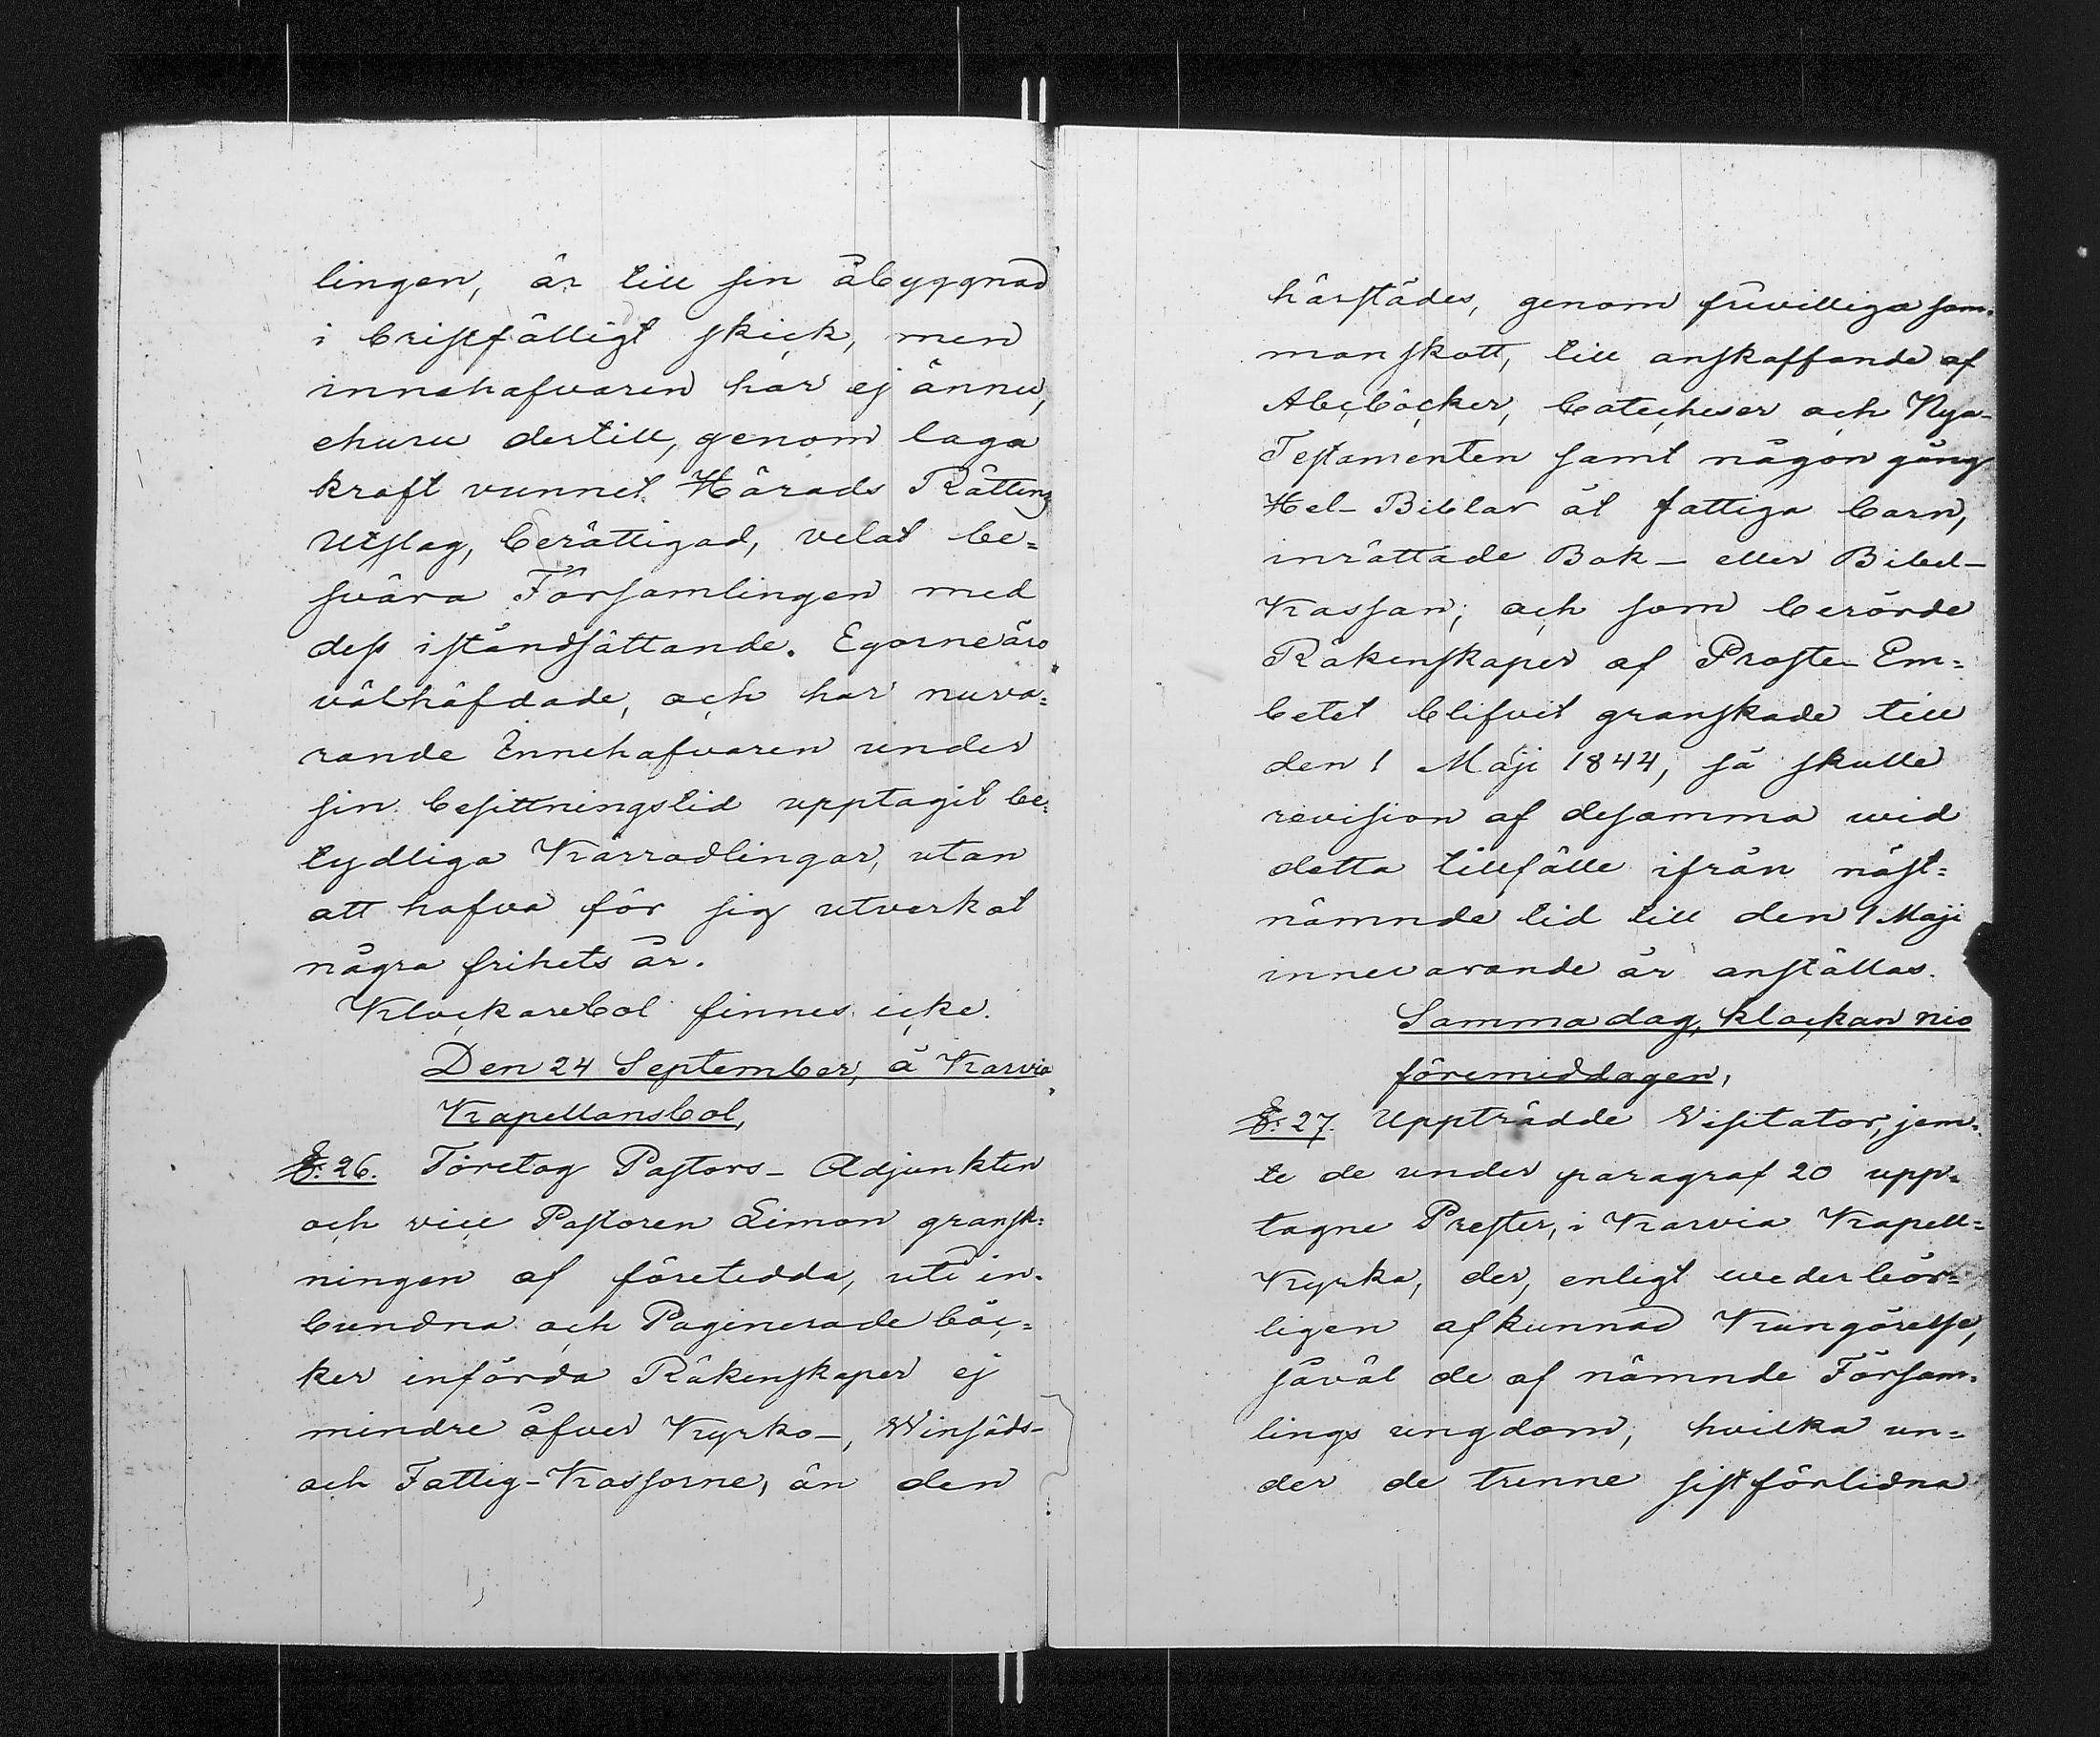 lingen, är till sin åbyggnad
i bristfälligt skick, men
innehafvaren har ej ännu,
churu dertill, genom laga
kraft vunnet Härads Rättens
Utslag, berättigad, velat be=
svära Församlingen med
dess iståndsättande. Egorne äro
välhäfdade, och har nuva=
rande Innehafvaren under
sin besittningstid upptagit be=
tydliga Kärrodlingar, utan
att hafva för sig utverkat
några frihets år.
Klockarebol finnes icke.
Den 24 September, å Karvia
Kapellansbol,
§: 26. Företog Pastors-Adjunkten
och vice Pastoren Limon gransk=
ningen af företedda, uti in=
bundna och Paginerade böc=
ker införda Räkenskaper ej
mindre öfver Kyrko-, Winsäds-
och Fattig-Kassorne, än den
härstädes, genom frivilliga sam=
manskott, till anskaffande af
Abcböcker, Catecheser och Nya-
Testamenten samt någon gång
Hel-Biblar åt fattiga barn,
inrättade Bok- eller Bibel-
Kassan; och som berörde
Räkenskaper af Proste-Em=
betet blifvit granskade till
den 1 Maji 1844, så skulle
revision af desamma wid
detta tillfälle ifrån näst=
nämnde tid till den 1 Maji
innevarande år anställas.
Samma dag, klockan nio
föremiddagen,
§: 27. Uppträdde Visitator, jem=
te de under paragraf 20 upp=
tagne Prester, i Karvia Kapell=
Kyrka, der, enligt wederbör=
ligen afkunnad Kungörelse,
såväl de af nämnde Försam=
lings ungdom, hvilka un=
der de trenne sistförlidna